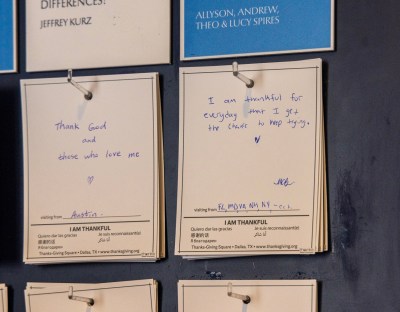 DIFFERENCES!
JEFFREY KURZ
ALLYSON, ANDREW,
THEO & LUCY SPIRES
Thank God
and
those who love me
visiting from Austin
I AM THANKFUL
Quiero dar las gracias
Je suis reconnaissant(e)
Thanks-Giving Square • Dallas, TX • www.thanksgiving.org
I am thankful for
everyday that I get
the chance to keep trying.
visiting from
I AM THANKFUL
Quiero dar las gracias
Je suis reconnaissant(e)
Thanks-Giving Square • Dallas, TX • www.thanksgiving.org